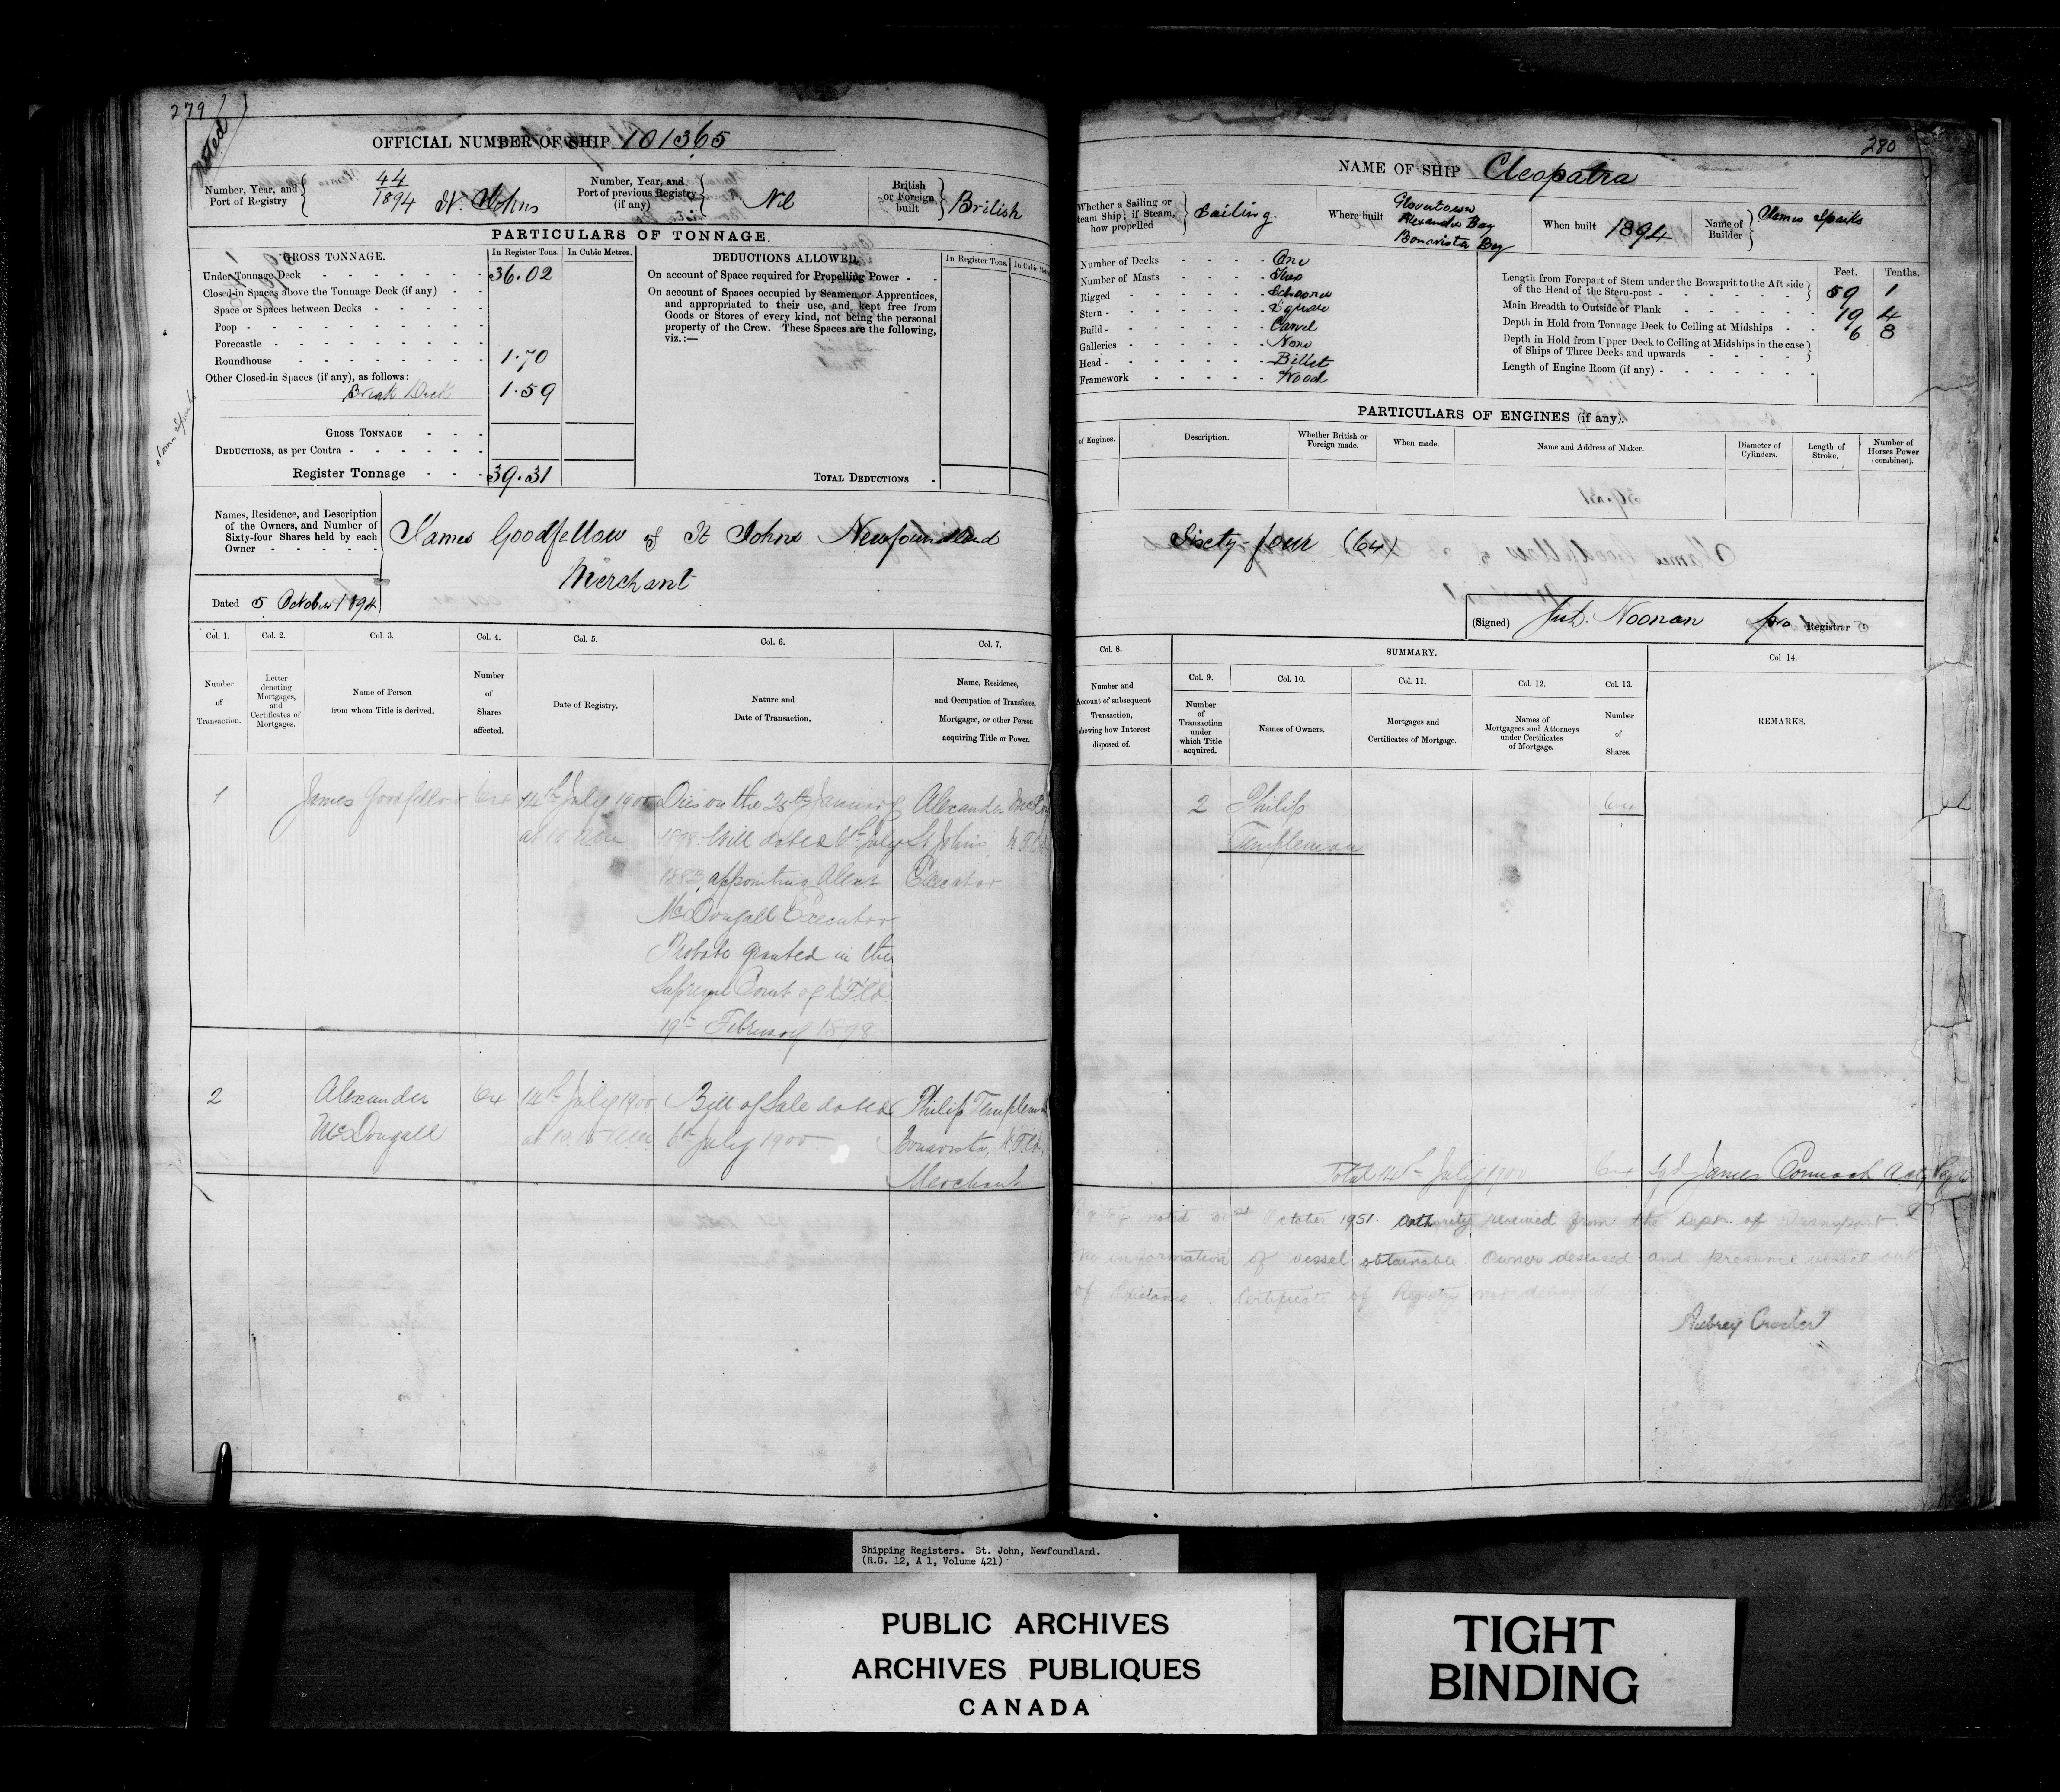 279
Noted
OFFICIAL NUMBER OF SHIP 101365
Number, Year, and Port of Registry
44
1894 St. Johns
Number, Year, and Port of previous Registry (if any)
Nil
British or Foreign built
British
PARTICULARS OF TONNAGE.
GROSS TONNAGE.
In Register Tons.
In Cubic Metres.
Under Tonnage Deck 36.02
Closed-in Spaces above the Tonnage Deck (if any)
Space or Spaces between Decks
Poop
Forecastle
Roundhouse 1.70
Other Closed-in Spaces (if any), as follows:
Break Deck 1.59
GROSS TONNAGE
DEDUCTIONS, as per Contra
Register Tonnage 39.31
DEDUCTIONS ALLOWED.
In Register Tons.
On account of Space required for Propelling Power
On account of Spaces occupied by Seamen or Apprentices,
and appropriated to their use, and kept free from
Goods or Stores of every kind, not being the personal
property of the Crew. These Spaces are the following,
viz.:—
TOTAL DEDUCTIONS
Names, Residence, and Description
of the Owners, and Number of
Sixty-four Shares held by each
Owner
James Goodfellow of St Johns Newfoundland
Merchant
Dated 5 October 1894
Col. 1.
Col. 2.
Col. 3.
Col. 4.
Col. 5.
Col. 6.
Col. 7.
Number of Transaction.
Letter denoting Mortgages, and Certificates of Mortgages.
Name of Person from whom Title is derived.
Number of Shares affected.
Date of Registry.
Nature and Date of Transaction.
Name, Residence, and Occupation of Transferee, Mortgagee, or other Person acquiring Title or Power.
1
James Goodfellow
64
14th July 1900
at 10 am
Dies on the 25th January
1898. Will dated 6th July
appointing Alexr
McDougall Executor
Probate granted in the
Supreme Court of NFld.
19th February 1898
Alexander
St Johns NFld
Executor
2
Alexander
McDougall
64
14th July 1900
at 10.15 am
Bill of Sale dated
6th July 1900
Philip Templeman
Bonavista, NFld.
Merchant
280
NAME OF SHIP Cleopatra
Whether a Sailing or
team Ship; if Steam,
how propelled
Sailing
Where built
Glovertown
Alexander Bay
Bonavista Bay
When built 1894
Name of Builder
James Sparks
Number of Decks One
Number of Masts Two
Rigged Schooner
Stern Square
Build Carvel
Galleries None
Head Billet
Framework Wood
Feet. Tenths.
Length from Forepart of Stem under the Bowsprit to the Aft side
of the Head of the Stern-post 59 1
Main Breadth to Outside of Plank 19 4
Depth in Hold from Tonnage Deck to Ceiling at Midships 6 8
Depth in Hold from Upper Deck to Ceiling at Midships in the case
of Ships of Three Decks and upwards
Length of Engine Room (if any)
PARTICULARS OF ENGINES (if any).
of Engines.
Description.
Whether British or Foreign made.
When made.
Name and Address of Maker.
Diameter of Cylinders.
Length of Stroke.
Number of Horses Power (combined).
Sixty-four (64)
(Signed) Noonan pro Registrar
Col. 8.
SUMMARY.
Col 14.
Col. 9.
Col. 10.
Col. 11.
Col. 12.
Col. 13.
Number and
Account of subsequent
Transaction,
showing how Interest
disposed of.
Number of Transaction under which Title acquired.
Names of Owners.
Mortgages and Certificates of Mortgage.
Names of Mortgagees and Attorneys under Certificates of Mortgage.
Number of Shares.
REMARKS.
2
Philip
Templeman
64
Total 14th July 1900 64 Sgd James Cormack
noted 31st October 1951. Authority received from the Dept. of Transport.
No information of vessel obtainable. Owner deseased and presume vessel out
of Existance. Certificate of Registry not delivered up.
Aubrey Crocker
Shipping Registers. St. John, Newfoundland.
(R.G. 12, A 1, Volume 421)
PUBLIC ARCHIVES
ARCHIVES PUBLIQUES
CANADA
TIGHT
BINDING